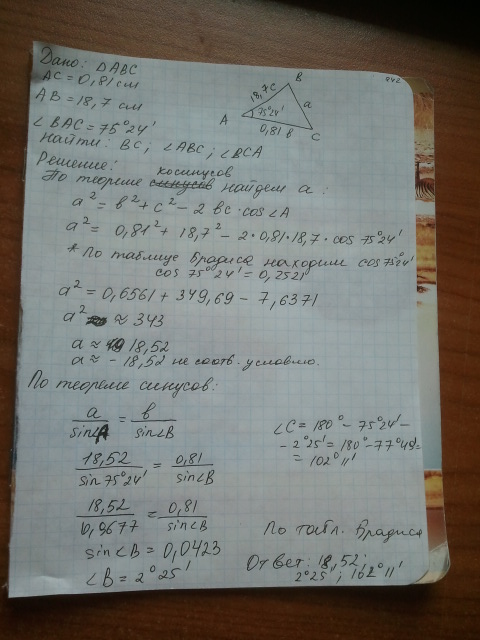 Дано: ΔABC
AC = 0,81 см
AB = 18,7 см
∠BAC = 75°24'
Найти: BC; ∠ABC; ∠BCA
942
B
18,7 c
a
A
75°24'
0,81 b
C
Решение:
По теореме косинусов найдем a:
a² = b² + c² - 2 bc · cos∠A
a² = 0,81² + 18,7² - 2·0,81·18,7·cos 75°24'
* По таблице Брадиса находим cos 75°24'
cos 75°24' = 0,2521
a² = 0,6561 + 349,69 - 7,6371
a² ≈ 343
a ≈ 18,52
a ≈ - 18,52 не соотв. условию.
По теореме синусов:
a/sin∠A = b/sin∠B
18,52/sin 75°24' = 0,81/sin∠B
18,52/0,9677 = 0,81/sin∠B
sin∠B = 0,0423
∠B = 2°25'
∠C = 180° - 75°24' -
- 2°25' = 180° - 77°49' =
= 102°11'
По табл. Брадиса
Ответ: 18,52;
2°25'; 102°11'